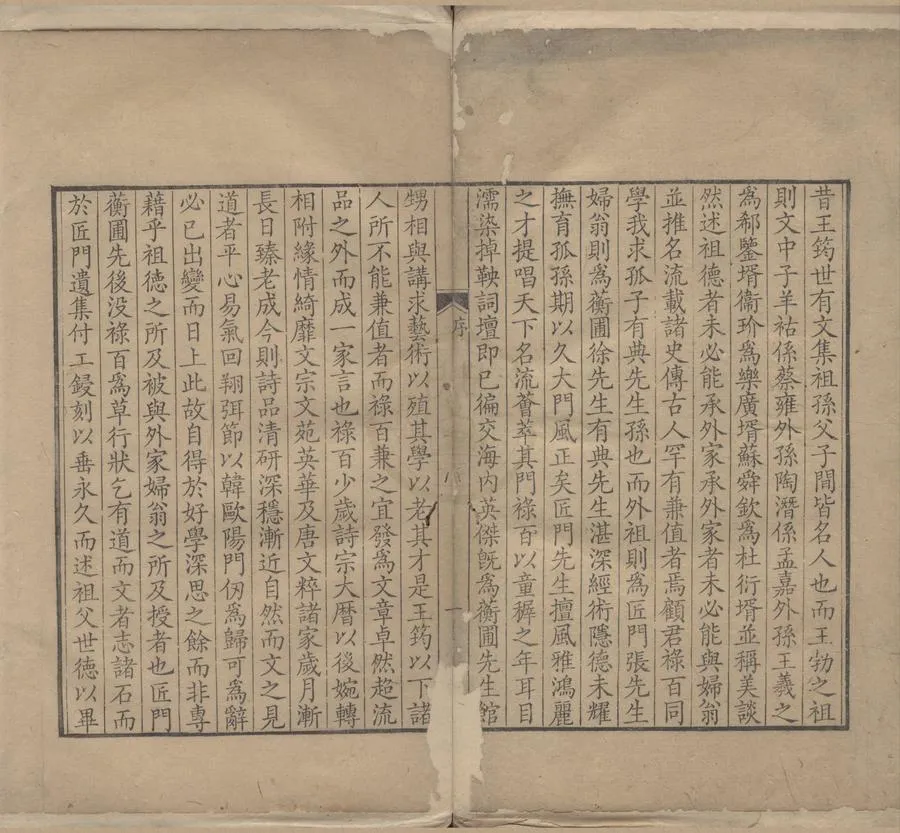 昔王筠世有文集祖孫父子間皆名人也而王勃之祖
則文中子羊祜係蔡雍外孫陶潛係孟嘉外孫王羲之
為郗鑒壻衞玠為樂廣壻蘇舜欽為杜衍壻並稱美談
然述祖德者未必能承外家承外家者未必能與婦翁
並推名流載諸史傳古人罕有兼值者焉顧君祿百同
學我求孤子有典先生孫也而外祖則為匠門張先生
婦翁則為蘅圃徐先生有典先生湛深經術隱德未耀
撫育孤孫期以久大門風正矣匠門先生擅風雅鴻麗
之才提唱天下名流薈萃其門祿百以童穉之年耳目
濡染掉鞅詞壇即已徧交海內英傑旣為蘅圃先生館
序
一
甥相與講求藝術以殖其學以老其才是王筠以下諸
人所不能兼值者而祿百兼之宜發為文章卓然超流
品之外而成一家言也祿百少歲詩宗大曆以後婉轉
相附緣情綺靡文宗文苑英華及唐文粹諸家歲月漸
長日臻老成今則詩品清研深穩漸近自然而文之見
道者平心易氣回翔弭節以韓歐陽門仞為歸可為辭
必已出變而日上此故自得於好學深思之餘而非專
藉乎祖德之所及被與外家婦翁之所及授者也匠門
蘅圃先後没祿百為草行狀乞有道而文者志諸石而
於匠門遺集付工鋟刻以垂永久而述祖父世德以畢